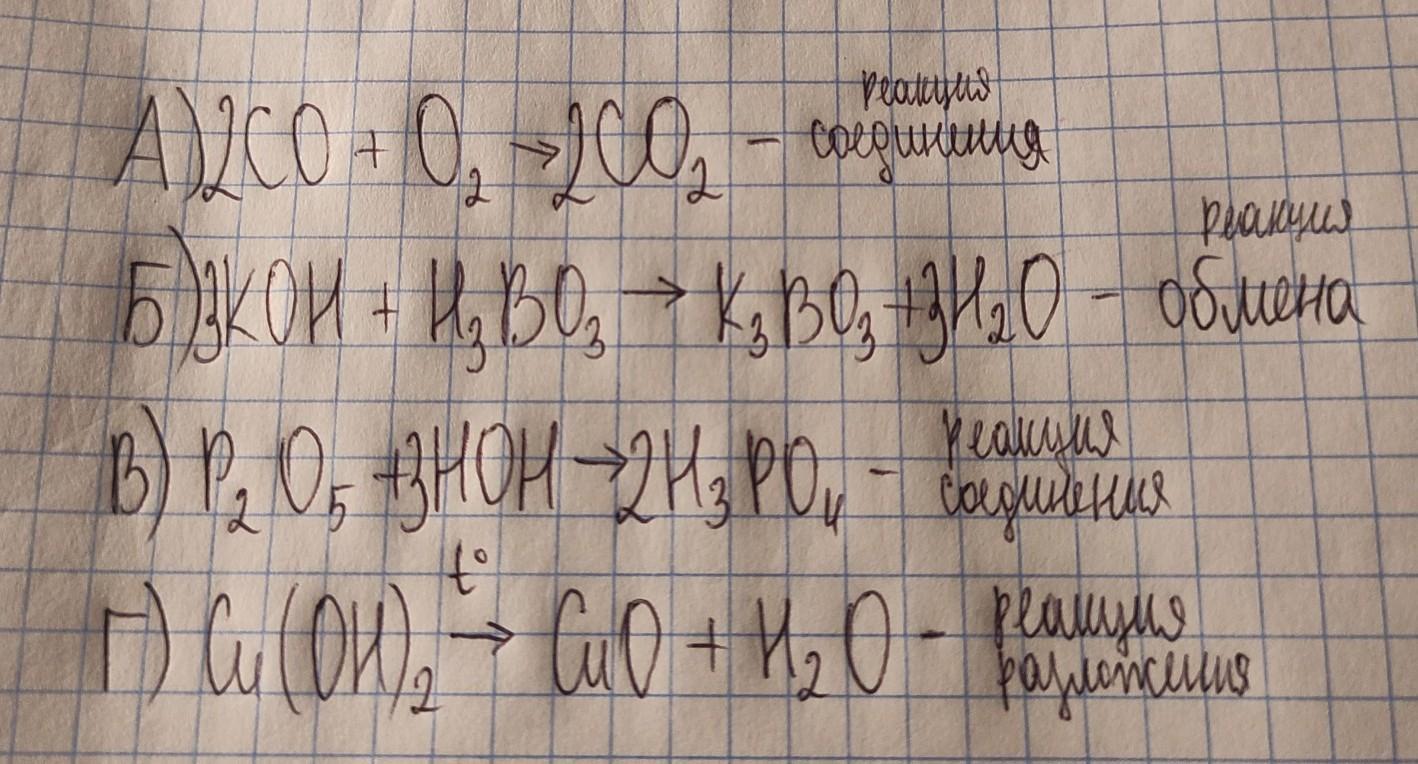 А) 2CO + O₂ → 2CO₂ – реакция соединения
Б) 3KOH + H₃BO₃ → K₃BO₃ + 3H₂O – реакция обмена
В) P₂O₅ + 3HOH → 2H₃PO₄ – реакция соединения
Г) Cu(OH)₂ t° → CuO + H₂O – реакция разложения